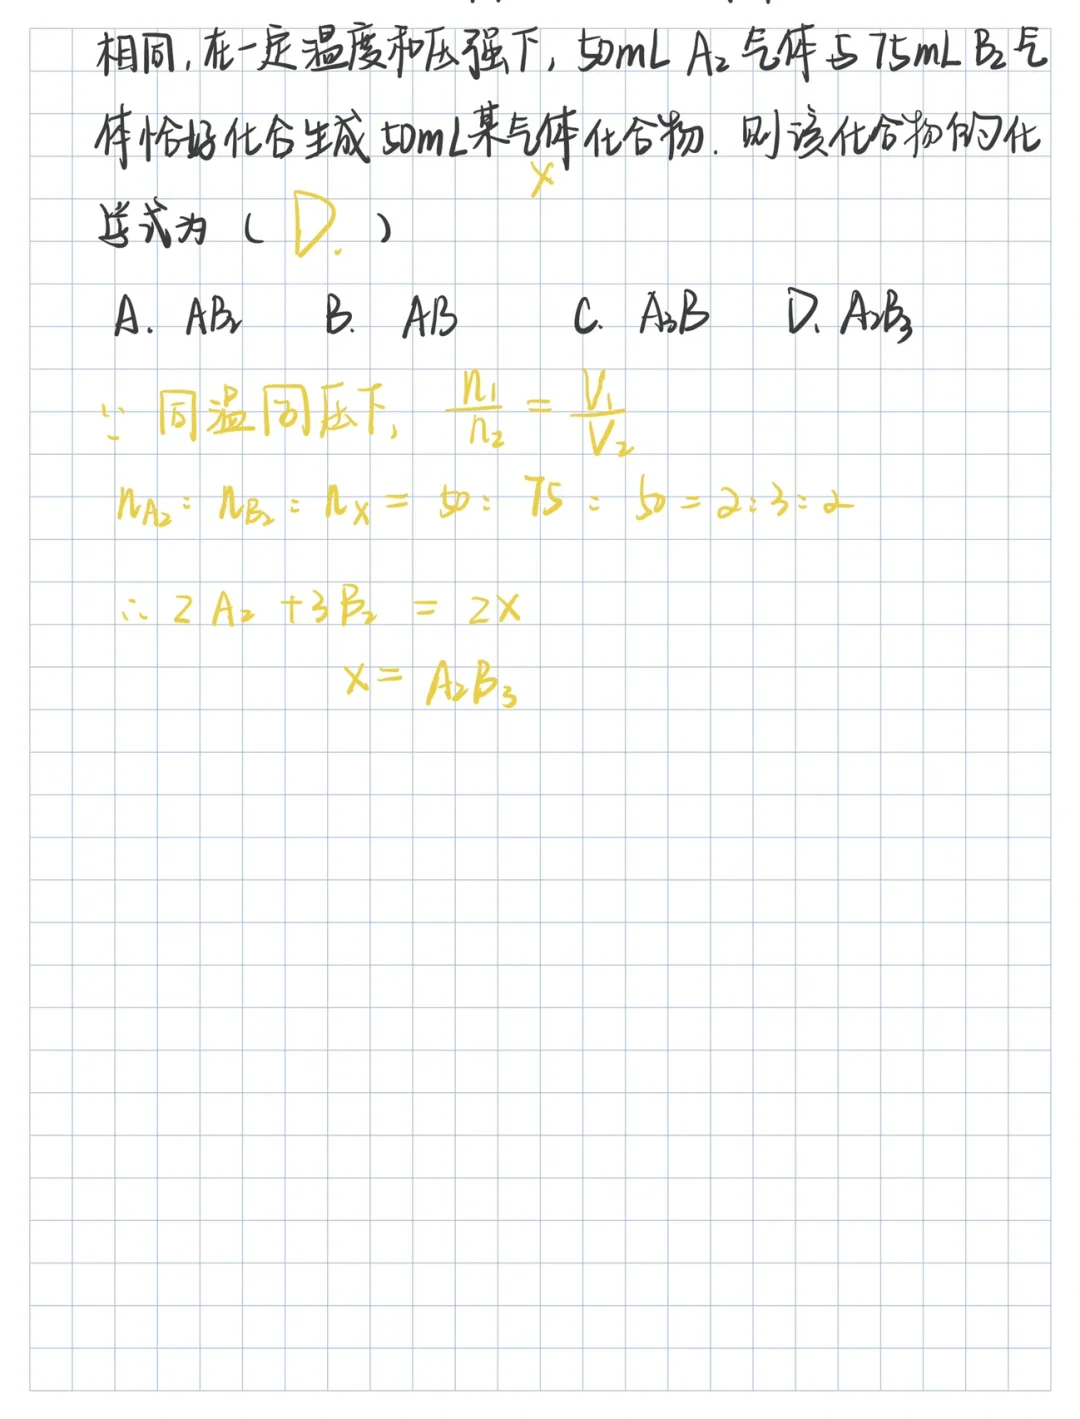 相同,在一定温度和压强下,50mL A₂气体与75mL B₂气
体恰好化合生成50mL某气体化合物.则该化合物的化
X
学式为( D. )
A. AB₂ B. AB C. A₃B D. A₂B₃
∵ 同温同压下, n₁/n₂ = V₁/V₂
n_A₂ : n_B₂ : n_X = 50 : 75 : 50 = 2:3:2
∴ 2A₂ + 3B₂ = 2X
X = A₂B₃